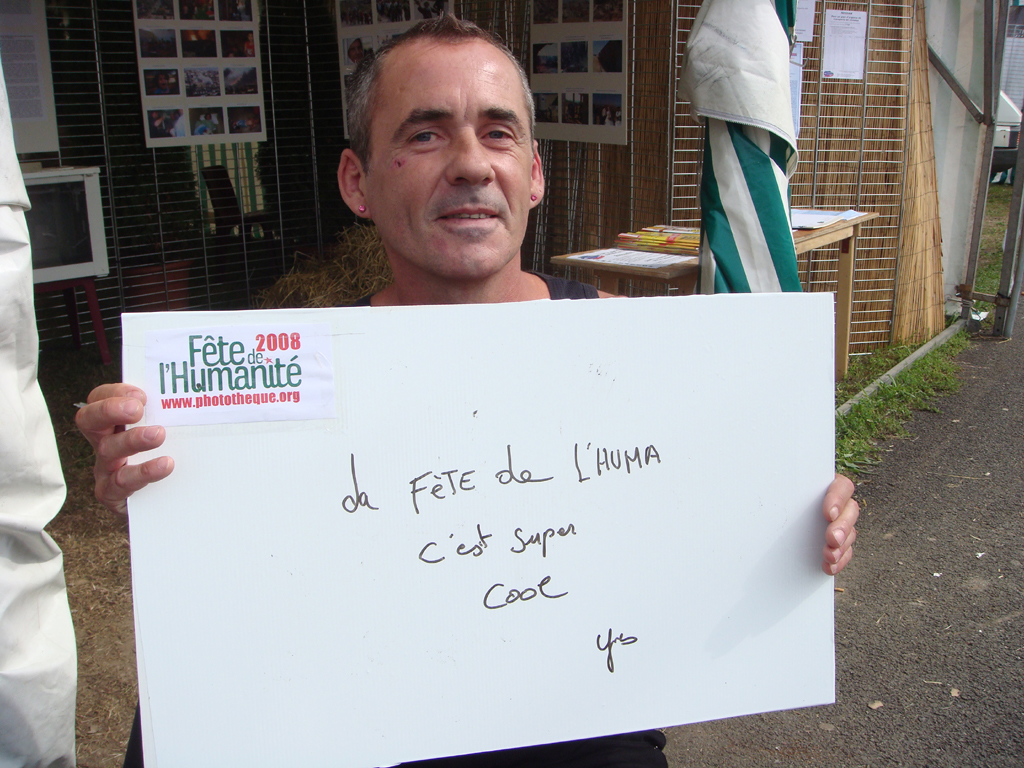 Fête de 2008
l'Humanité
www.phototheque.org
da FèTE de L'HUMA
c'est super
cool
yes